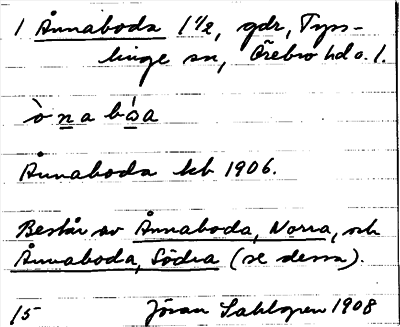 1 Ånnaboda 1 1/2, gdr, Tyss-
linge sn, Örebro hd o. l.
Ånnaboda kb 1906.
Består av Ånnaboda, Norra, och
Ånnaboda, Södra (se dessa).
15 Jöran Sahlgren 1908